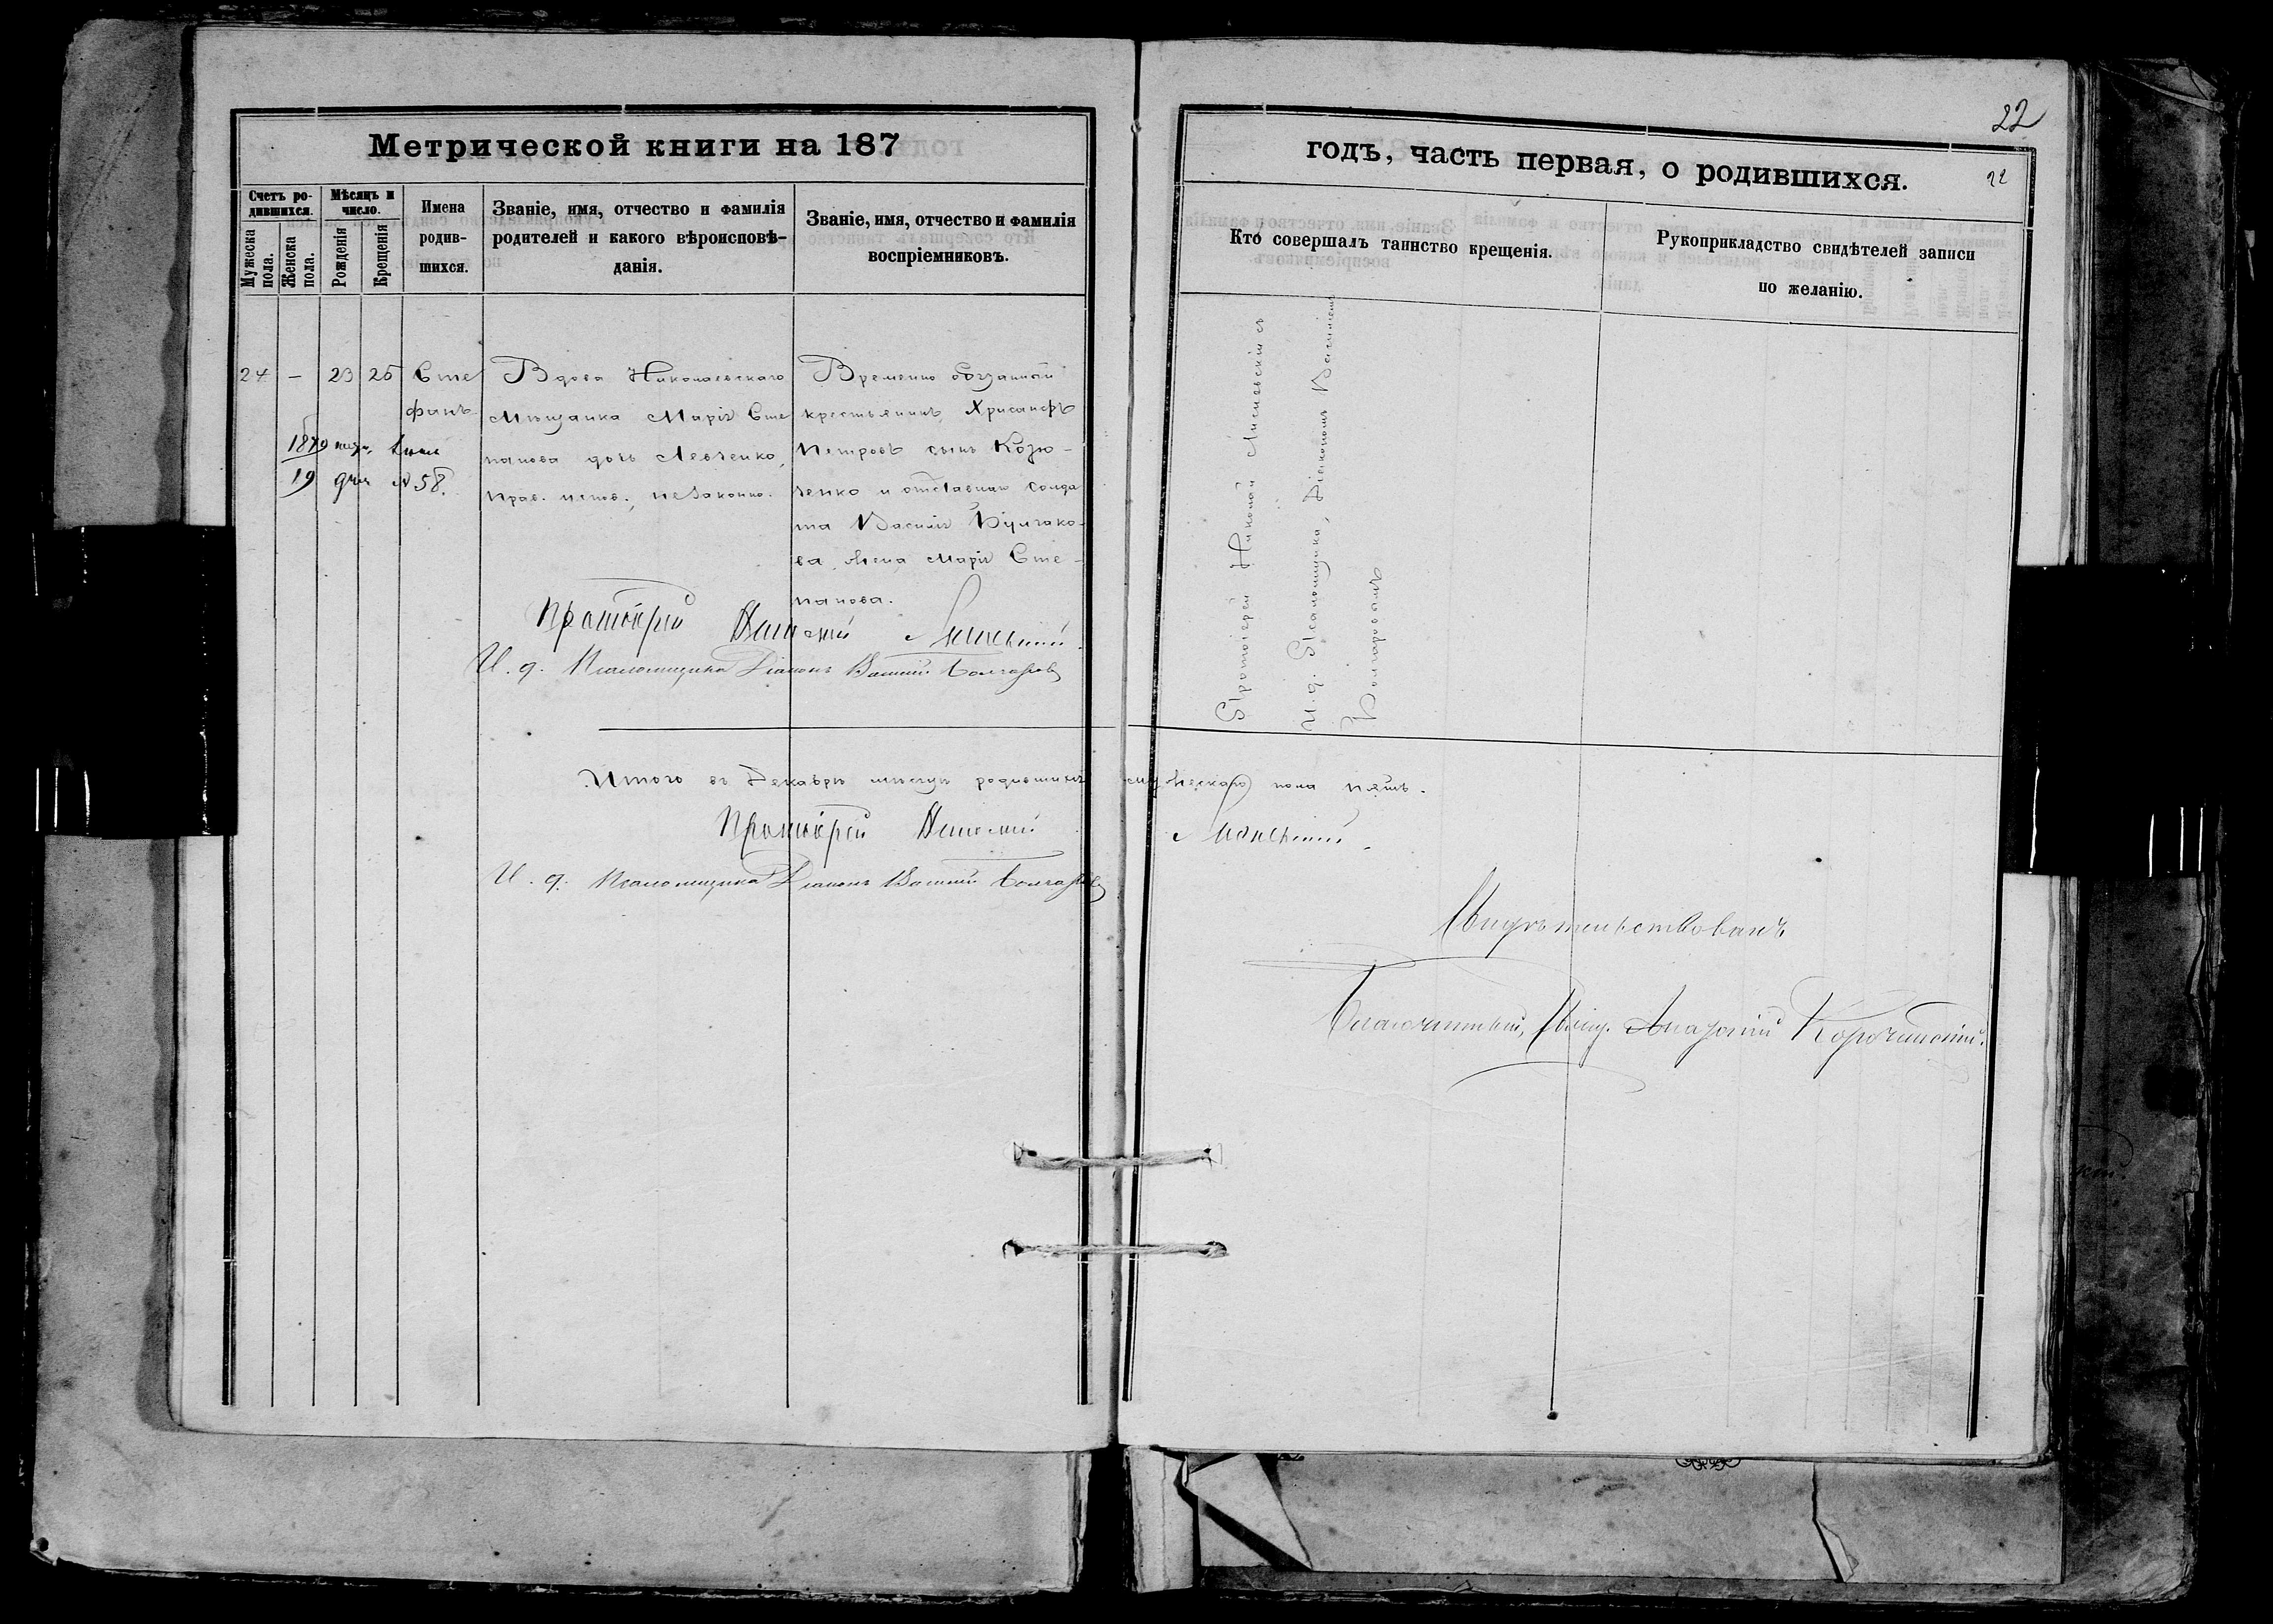 Метрической книги на 187
Счетъ ро-
дившихся.
Мужеска
пола.
Женска
пола.
Мѣсяцъ и
число.
Рожденія
Крещенія
Имена
родив-
шихся.
Званіе, имя, отчество и фамилія
родителей и какого вѣроисповѣ-
данія.
Званіе, имя, отчество и фамилія
воспріемниковъ.
24 — 23 25
Сте
фанъ
1879
19 58.
Вдова Николаевскаго
Мѣщанка Марія Сте
панова дочь Левченко,
прав. испов., незаконно.
Временно обязанный
крестьянинъ Хрисанфъ
Петровъ сынъ Козю-
ченко и отставнаго солда
та Василія Булгако-
ва жена Марія Сте-
панова.
Протоіерей Николай
И. д. Псаломщика Діаконъ Василій Болгаровъ
Итого въ Декабрѣ мѣсяцѣ родившихся мужескаго пола пять.
Протоіерей Николай
И. д. Псаломщика Діаконъ Василій Болгаровъ
22
годъ, часть первая, о родившихся.
22
Кто совершалъ таинство крещенія.
Рукоприкладство свидѣтелей записи
по желанію.
Протоіерей Николай съ
и. д. Псаломщика, Діакономъ Василіемъ
Болгаровымъ
Свидѣтельствовалъ
Благочинный, Свящ. Корочанскій.